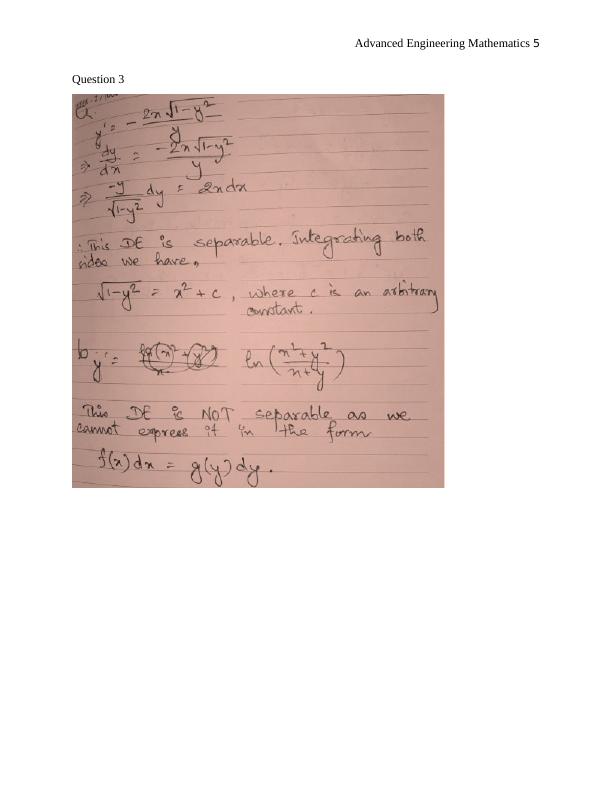 Advanced Engineering Mathematics 5
Question 3
a.
y' = - 2x√(1-y²) / y
⇒ dy/dx = -2x√(1-y²) / y
⇒ -y/√(1-y²) dy = 2xdx
∴ This DE is separable. Integrating both
sides we have,
√(1-y²) = x² + c, where c is an arbitrary
constant.
b y' = ln((x²+y²)/(x+y))
This DE is NOT separable as we
cannot express it in the form
f(x)dx = g(y)dy.